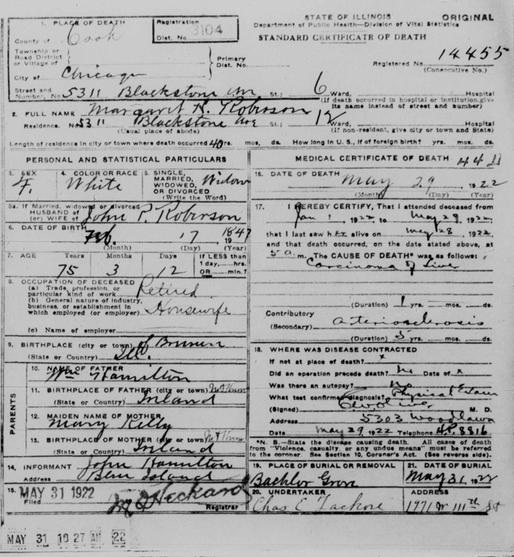 STATE OF ILLINOIS ORIGINAL
Department of Public Health—Division of Vital Statistics
STANDARD CERTIFICATE OF DEATH
Registered No. 14455
(Consecutive No.)
1. PLACE OF DEATH
Registration
Dist. No. 3104
County of Cook
Township or
Road District
or Village of
Primary
Dist. No.
City of Chicago
Street and
Number, No. 5311 Blackstone Av St.; 6 Ward, Hospital
(If death occurred in hospital or institution, give its name instead of street and number)
2. FULL NAME Margaret R. Robinson
Residence. No. 5311 Blackstone Ave St.; Ward, Hospital
(Usual place of abode) (If non-resident, give city or town and State)
Length of residence in city or town where death occurred 40 yrs. mos. ds. How long in U. S., if of foreign birth? yrs. mos. ds.
PERSONAL AND STATISTICAL PARTICULARS
3. SEX
F.
4. COLOR OR RACE
White
5. SINGLE,
MARRIED,
WIDOWED,
OR DIVORCED
(Write the Word)
Widow
5a. If married, widowed or divorced
HUSBAND of
(or) WIFE of John R. Robinson
6. DATE OF BIRTH Feb 17 1847
(Month) (Day) (Year)
7. AGE
75 3 12
If LESS than
1 day, hrs.
OR min.?
8. OCCUPATION OF DECEASED
(a) Trade, profession, or
particular kind of work Retired
(b) General nature of industry,
business, or establishment in
which employed (or employer) Housewife
(c) Name of employer
9. BIRTHPLACE (city or town)
(State or Country) Ill
PARENTS
10. NAME OF FATHER
Wm Hamilton
11. BIRTHPLACE OF FATHER (city or town) Not Known
(State or Country) Ireland
12. MAIDEN NAME OF MOTHER
Mary Kelly
13. BIRTHPLACE OF MOTHER (city or town) Not Known
(State or Country) Ireland
14. INFORMANT John Hamilton
Blue Island
15. MAY 31 1922
Registrar
MEDICAL CERTIFICATE OF DEATH
16. DATE OF DEATH
May 29 1922
(Month) (Day) (Year)
17. I HEREBY CERTIFY, That I attended deceased from
Jan 1 1922 to May 29, 1922
that I last saw her alive on May 28 1922
and that death occurred, on the date stated above, at
5 a m. The CAUSE OF DEATH* was as follows:
Carcinoma of Liver
(Duration) 1 yrs. mos. ds.
Contributory
(Secondary) Arteriosclerosis
(Duration) yrs. mos. ds.
18. WHERE WAS DISEASE CONTRACTED
If not at place of death? x
Did an operation precede death? No Date of x
Was there an autopsy? No
What test confirmed diagnosis? Physical Exam
(Signed) M. D.
Address 5303 Woodlawn
Date May 29 1922 Telephone H.P. 8816
*N. B.—State the disease causing death. All cases of death
from "Violence, casualty, or any undue means" must be referred
to the coroner. See Section 10, Coroner's Act. (See reverse side).
19. PLACE OF BURIAL OR REMOVAL
Bachlor Grove
21. DATE OF BURIAL
May 31, 1922
20. UNDERTAKER
ADDRESS
1971 W 111th St
MAY 31 10 27 AM 22